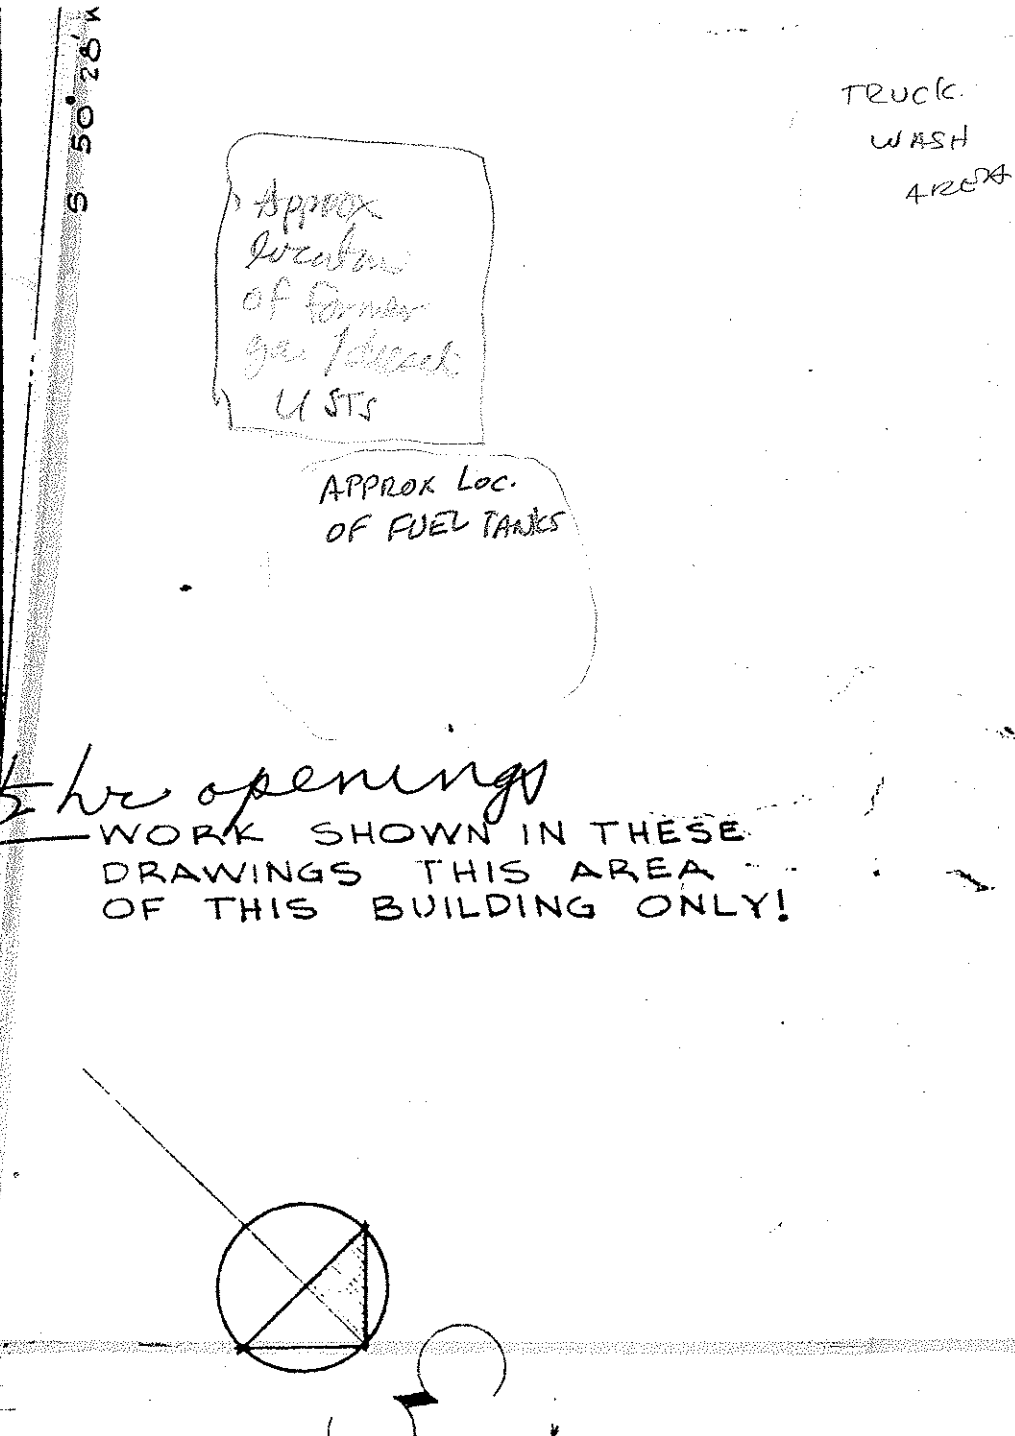 S 50° 28' W
TRUCK
WASH
AREA
Approx
location
of former
gas / diesel
USTS
APPROX LOC.
OF FUEL TANKS
hr openings
WORK SHOWN IN THESE
DRAWINGS THIS AREA
OF THIS BUILDING ONLY!